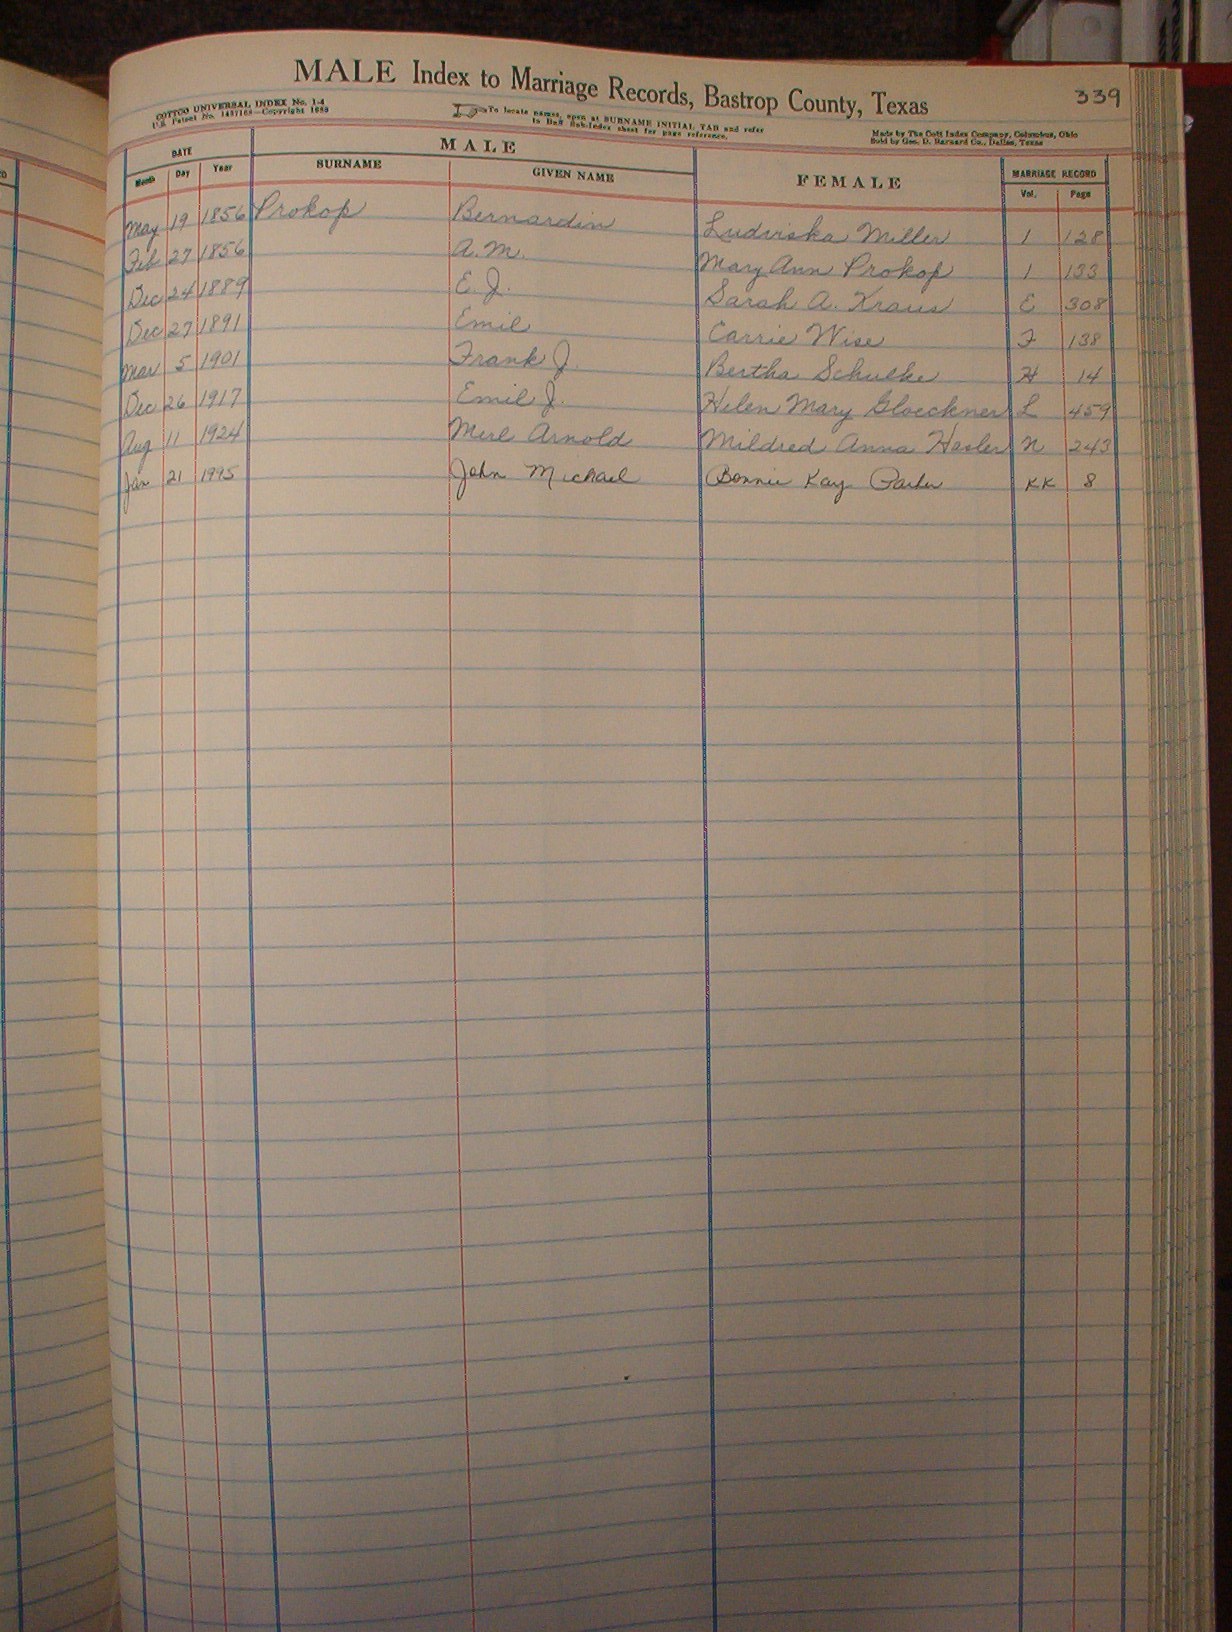 MALE Index to Marriage Records, Bastrop County, Texas 339
COTTCO UNIVERSAL INDEX No. 1-4
U.S. Patent No. 1457168—Copyright 1888
To locate names, open at SURNAME INITIAL TAB and refer
to Buff Sub-Index sheet for page reference.
Made by The Cott Index Company, Columbus, Ohio
Sold by Geo. D. Barnard Co., Dallas, Texas
DATE MALE FEMALE MARRIAGE RECORD
Month Day Year SURNAME GIVEN NAME Vol. Page
May 19 1856 Prokop Bernardin Ludviska Miller 1 128
Feb 27 1856 A. M. Mary Ann Prokop 1 133
Dec 24 1889 E. J. Sarah A. Kraus E 308
Dec 27 1891 Emil Carrie Wise F 138
Mar 5 1901 Frank J. Bertha Schulke H 14
Dec 26 1917 Emil J. Helen Mary Gloeckner L 459
Aug 11 1924 Merl Arnold Mildred Anna Hasler N 243
Jan 21 1995 John Michael Bonnie Kay KK 8